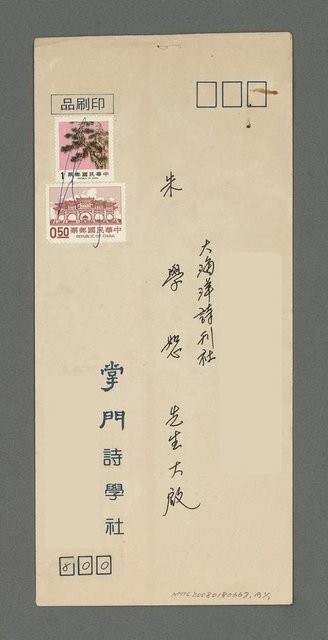 印刷品
1 中華民國郵票
REPUBLIC OF CHINA
中華民國郵票
0.50 REPUBLIC OF CHINA
大海洋詩刊社
朱學恕 先生大啟
掌門詩學社
800
NMTL20080180667